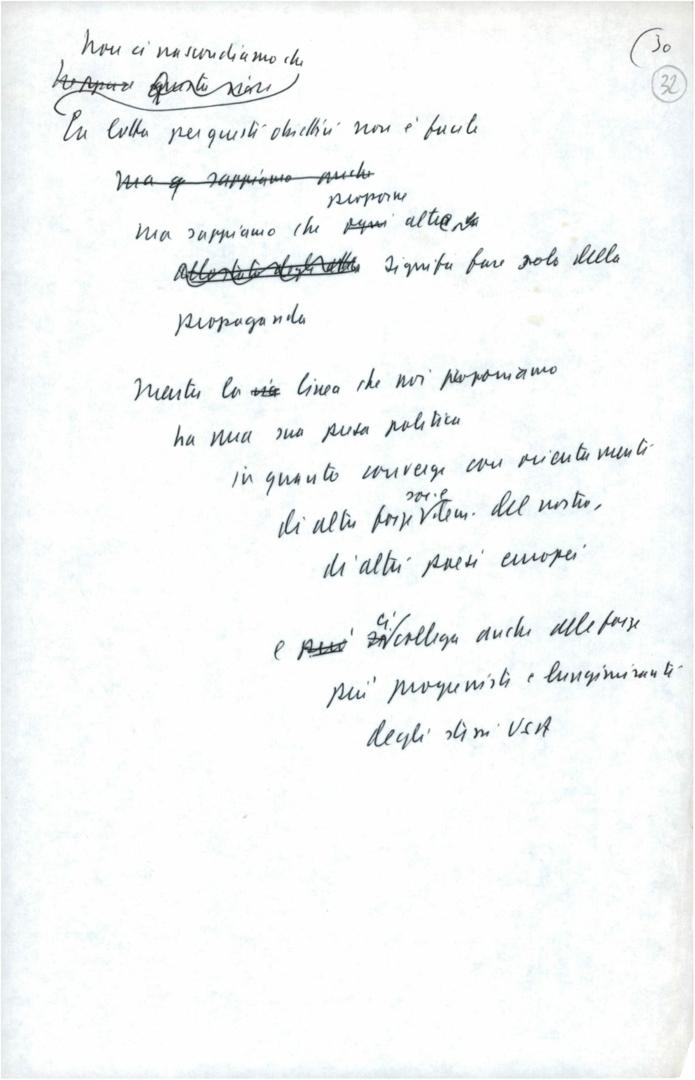 30
32
Non ci nascondiamo che
neppure queste sono
La lotta per questi obiettivi non è facile
ma sappiamo anche
proporre
ma sappiamo che ogni altro
significa fare solo della
propaganda
Mentre la via linea che noi proponiamo
ha una sua presa politica
in quanto converge con orientamenti
soc. e
di altre forze dem. del nostro,
di altri paesi europei
ci
e più si collega anche alle forze
più progressiste e lungimiranti
degli stessi USA